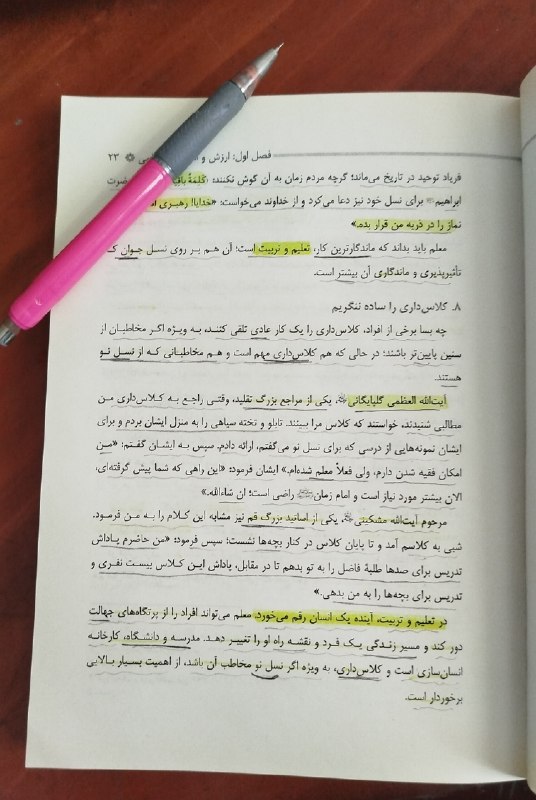 فصل اول: ارزش و ۲۳
فریاد توحید در تاریخ می‌ماند؛ گرچه مردم زمان به آن گوش نکنند؛ «کَلِمَةً
ابراهیم برای نسل خود نیز دعا می‌کرد و از خداوند می‌خواست: «خدایا! رهبری
نماز را در ذریه من قرار بده.»
معلم باید بداند که ماندگارترین کار، تعلیم و تربیت است؛ آن هم بر روی نسل جوان که
تأثیرپذیری و ماندگاری آن بیشتر است.
۸. کلاس‌داری را ساده ننگریم
چه بسا برخی از افراد، کلاس‌داری را یک کار عادی تلقی کنند، به ویژه اگر مخاطبان از
سنین پایین‌تر باشند؛ در حالی که هم کلاس‌داری مهم است و هم مخاطبانی که از نسل نو
هستند.
آیت‌الله العظمی گلپایگانی، یکی از مراجع بزرگ تقلید، وقتی راجع به کلاس‌داری من
مطالبی شنیدند، خواستند که کلاس مرا ببینند. تابلو و تخته سیاهی را به منزل ایشان بردم و برای
ایشان نمونه‌هایی از درسی که برای نسل نو می‌گفتم، ارائه دادم. سپس به ایشان گفتم: «من
امکان فقیه شدن دارم، ولی فعلاً معلم شده‌ام.» ایشان فرمود: «این راهی که شما پیش گرفته‌ای،
الان بیشتر مورد نیاز است و امام زمان راضی است؛ ان شاءالله.»
مرحوم آیت‌الله مشکینی، یکی از اساتید بزرگ قم نیز مشابه این کلام را به من فرمود.
شبی به کلاسم آمد و تا پایان کلاس در کنار بچه‌ها نشست؛ سپس فرمود: «من حاضرم پاداش
تدریس برای صدها طلبهٔ فاضل را به تو بدهم تا در مقابل، پاداش این کلاس بیست نفری و
تدریس برای بچه‌ها را به من بدهی.»
در تعلیم و تربیت، آینده یک انسان رقم می‌خورد. معلم می‌تواند افراد را از پرتگاه‌های جهالت
دور کند و مسیر زندگی یک فرد و نقشه راه او را تغییر دهد. مدرسه و دانشگاه، کارخانه
انسان‌سازی است و کلاس‌داری، به ویژه اگر نسل نو مخاطب آن باشد، از اهمیت بسیار بالایی
برخوردار است.